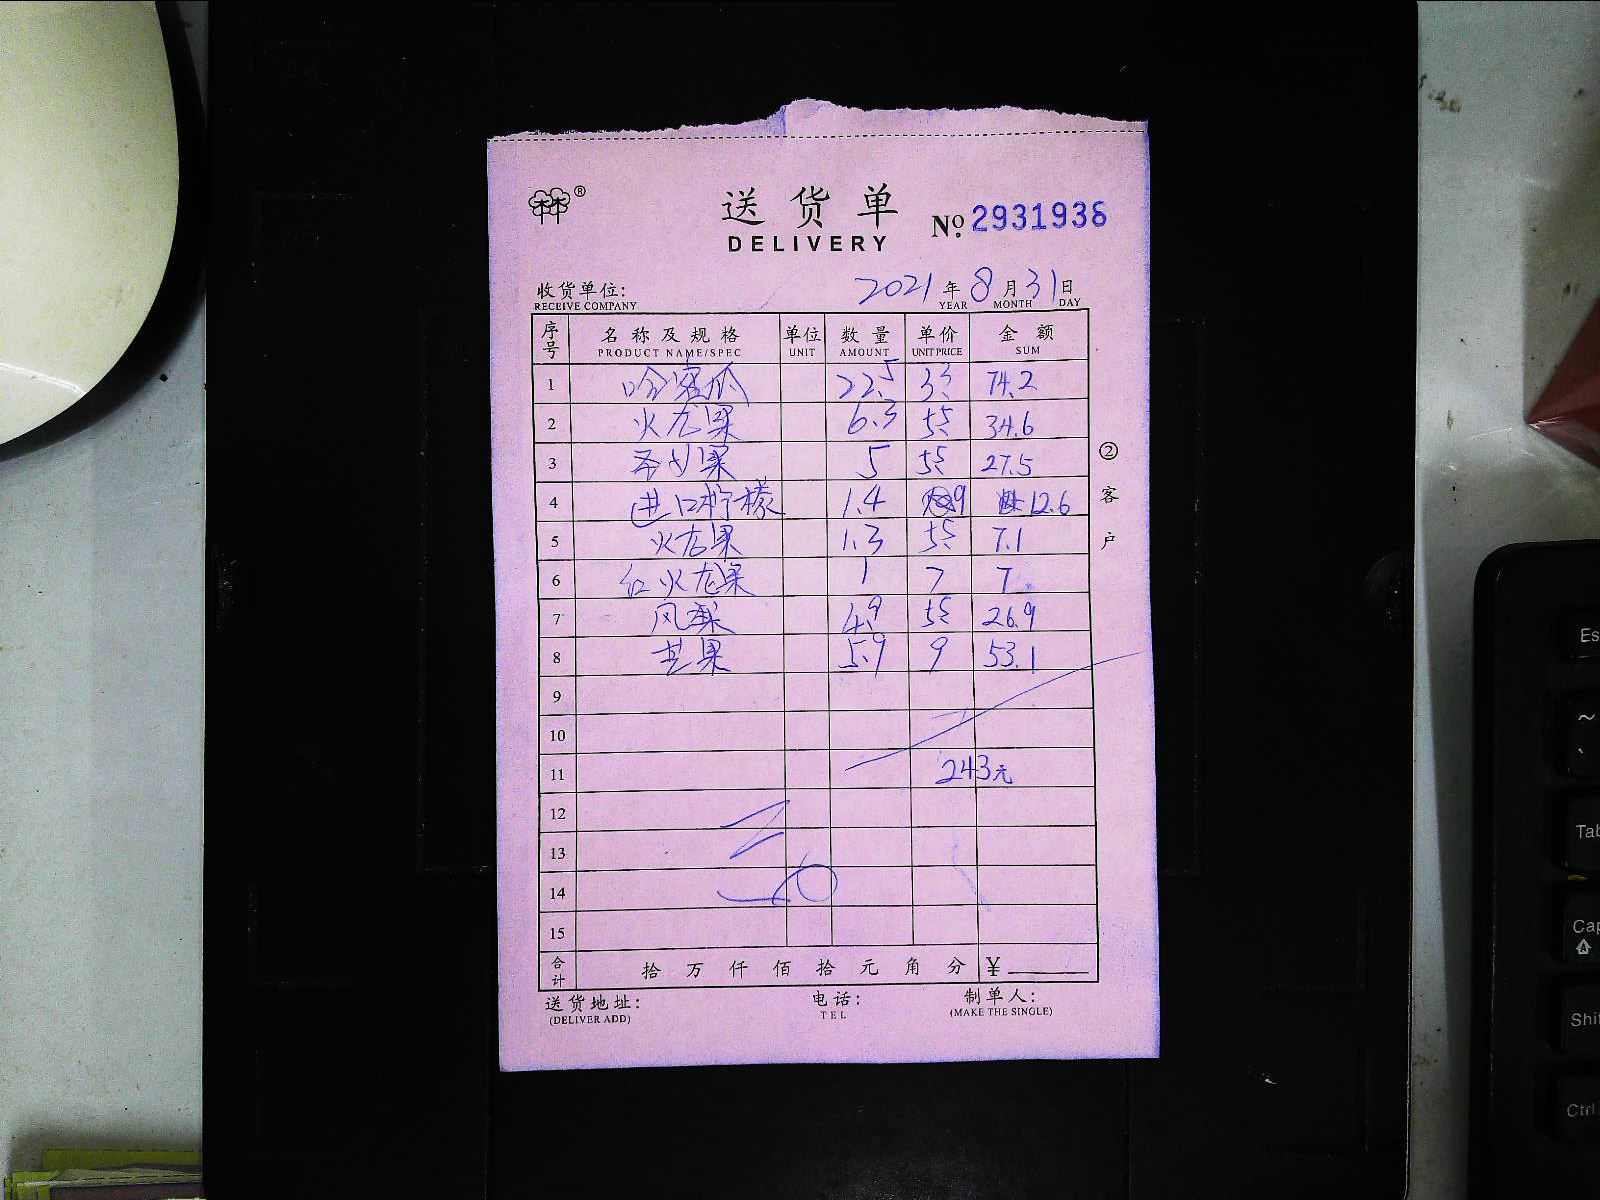 ®
送货单
DELIVERY
No. 2931936
收货单位: 2021年8月31日
RECEIVE COMPANY YEAR MONTH DAY
序号 名称及规格 单位 数量 单价 金额
PRODUCT NAME/SPEC UNIT AMOUNT UNIT PRICE SUM
1 哈密瓜 22.5 3.3 74.2
2 火龙果 6.3 5.5 34.6
3 圣女果 5 5.5 27.5
4 进口柠檬 1.4 9 12.6
5 火龙果 1.3 5.5 7.1
6 红火龙果 1 7 7
7 风梨 4.9 5.5 26.9
8 芒果 5.9 9 53.1
9
10
11 243元
12
13
14
15
合计 拾万仟佰拾元角分 ¥
送货地址: 电话: 制单人:
(DELIVER ADD) TEL (MAKE THE SINGLE)
②客户
Es
~
`
Tab
Cap
Shif
Ctrl